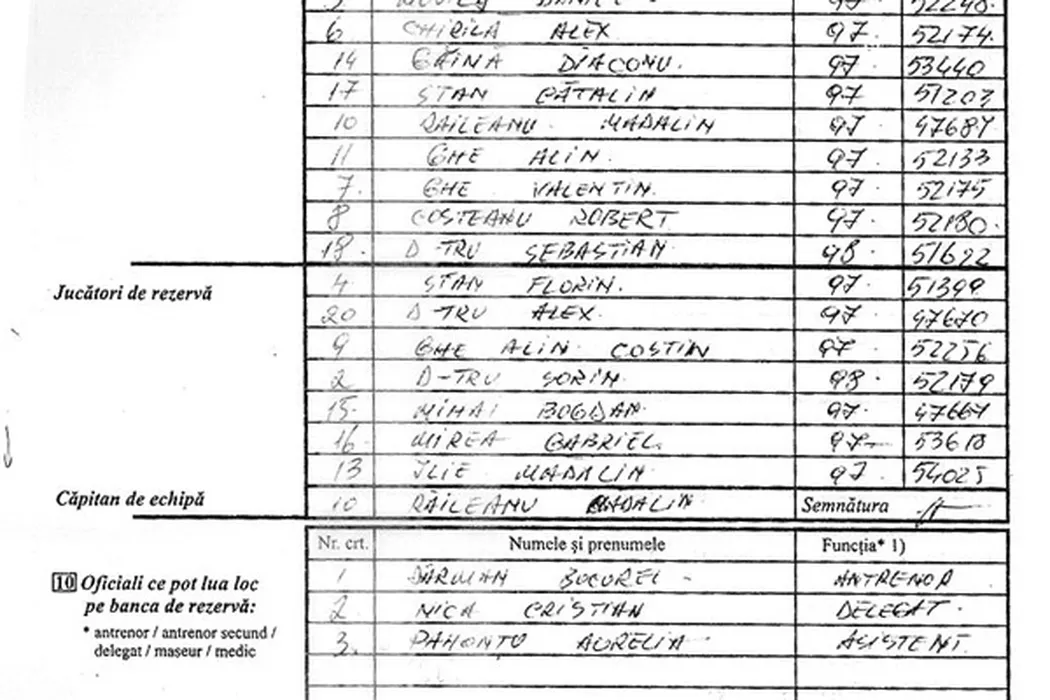 6 CHIRILĂ ALEX 97 52174.
14 GĂINĂ DIACONU. 97 53440
17 STAN CĂTALIN 97 51203
10 RĂILEANU MADALIN 97 47687
11 GHE ALIN. 97 52133
7. GHE VALENTIN. 97 52175
8 COSTEANU ROBERT 97 52180.
18. D-TRU SEBASTIAN 98 51692
Jucători de rezervă
4 STAN FLORIN. 97 51399
20 D-TRU ALEX. 97 47670
9 GHE ALIN COSTIN 97 52256
2 D-TRU SORIN. 98. 52179
15. MIHAI BOGDAN. 97. 47667
16 MIREA GABRIEL 97 53618
13 ILIE MADALIN 97 54025
Căpitan de echipă 10 RĂILEANU MADALIN Semnătura
Nr. crt. Numele și prenumele Funcția* 1)
10 Oficiali ce pot lua loc
pe banca de rezervă:
* antrenor / antrenor secund /
delegat / maseur / medic
1 BUCUREL - ANTRENOR
2 NICA CRISTIAN DELEGAT.
3. AURELIA ASISTENT.